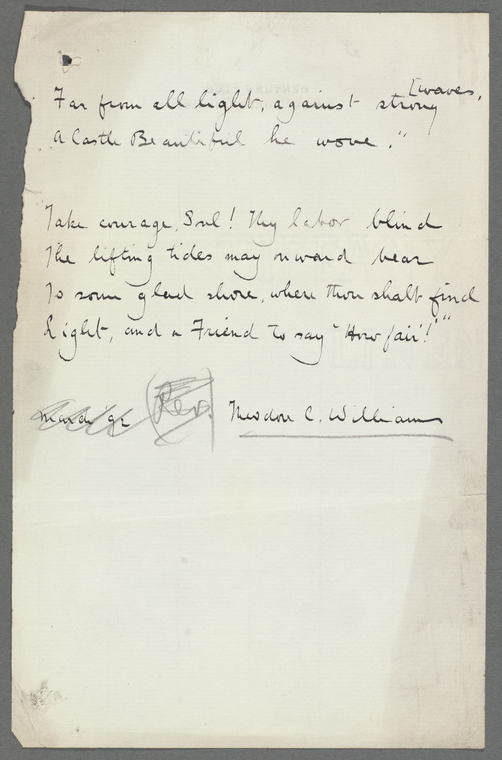 [waves,
Far from all light, against strong
A Castle Beautiful he wove."
Take courage, Soul! Thy labor blind
The lifting tides may onward bear
To some glad shore, where thou shalt find
Light, and a Friend to say "How fair!""
Rev. Theodore C. Williams